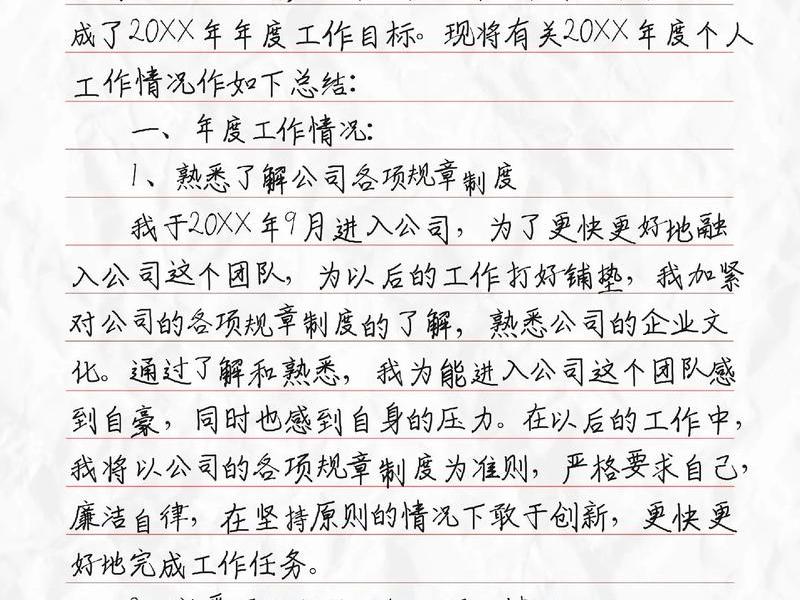 成了20XX年年度工作目标。现将有关20XX年度个人
工作情况作如下总结：
一、年度工作情况：
1、熟悉了解公司各项规章制度
我于20XX年9月进入公司，为了更快更好地融
入公司这个团队，为以后的工作打好铺垫，我加紧
对公司的各项规章制度的了解，熟悉公司的企业文
化。通过了解和熟悉，我为能进入公司这个团队感
到自豪，同时也感到自身的压力。在以后的工作中，
我将以公司的各项规章制度为准则，严格要求自己，
廉洁自律，在坚持原则的情况下敢于创新，更快更
好地完成工作任务。